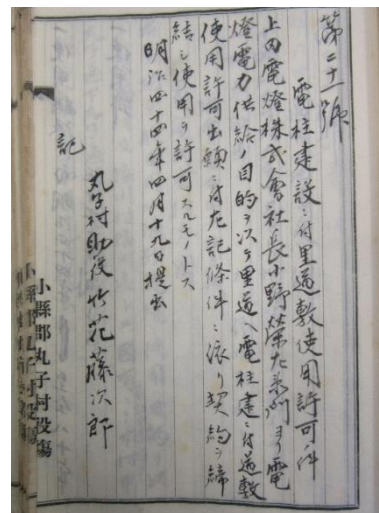 第二十一號
電柱建設ニ付里道敷使用許可件
上田電燈株式會社長小野榮左衛門ヨリ電
燈電力供給ノ目的ヲ以テ里道ヘ電柱建ニ付道敷
使用許可出願ニ付左記條件ニ依リ契約ヲ締
結シ使用ヲ許可スルモノトス
明治四十四年四月十九日提出
丸子村助役竹花藤次郎
記
小縣郡丸子村役場